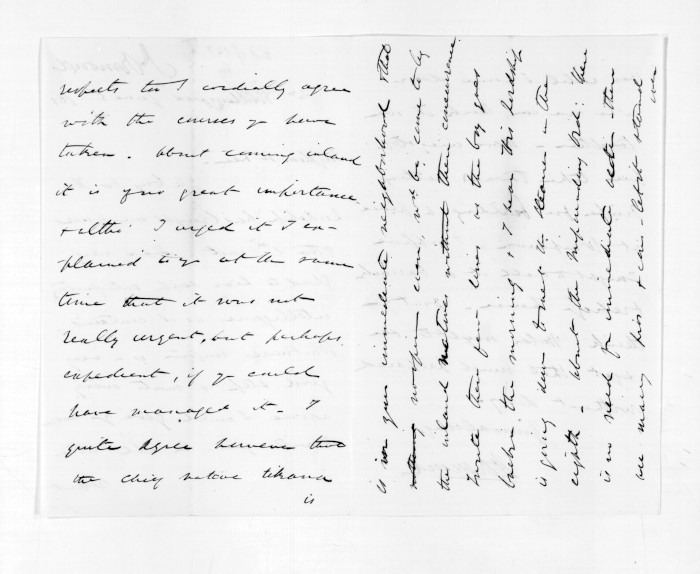 respects too I cordially agree
with the courses yo have
taken. About coming inland
it is of no great importance
+ altho' I urged it I ex-
plained to yo at the same
time that it was not
really urgent, but perhaps
expedient, if yo could
have managed it - I
quite agree however that
the chief native tikana
is
is in your immediate neighborhood that
nothing no open can now be come to by
the inland natives without their concurrence
I write these few lines as the boy goes
back in the morning + I hear His Lordship
is going down to meet the steamer on the
eighth - about the Impounding Ord: there
is no need for immediate action - there
are many pigs + can - let it stand
over